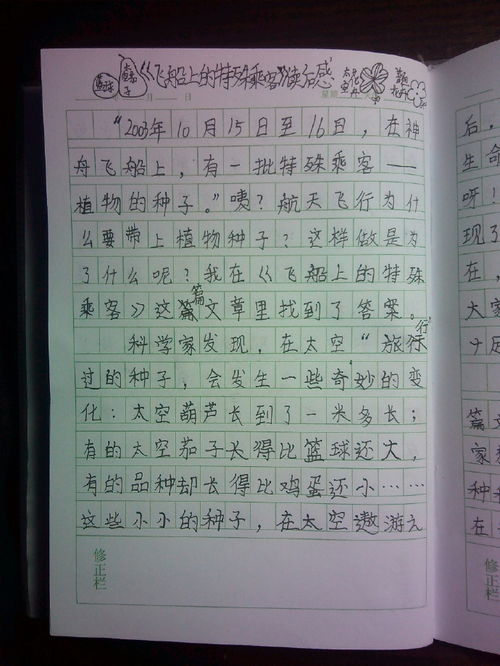 《飞船上的特殊乘客》读后感
"2003年10月15日至16日,在神
舟飞船上,有一批特殊乘客——
植物的种子。"咦?航天飞行为什
么要带上植物种子?这样做是为
了什么呢?我在《飞船上的特殊
乘客》这篇文章里找到了答案。
科学家发现,在太空"旅行
过的种子,会发生一些奇妙的变
化:太空葫芦长到了一米多长;
有的太空茄子长得比篮球还大,
有的品种却长得比鸡蛋还小……
这些小小的种子,在太空遨游了
修正栏
后,
生命
呀!
现了
在,
大家
篇文
家
种
在
修正栏